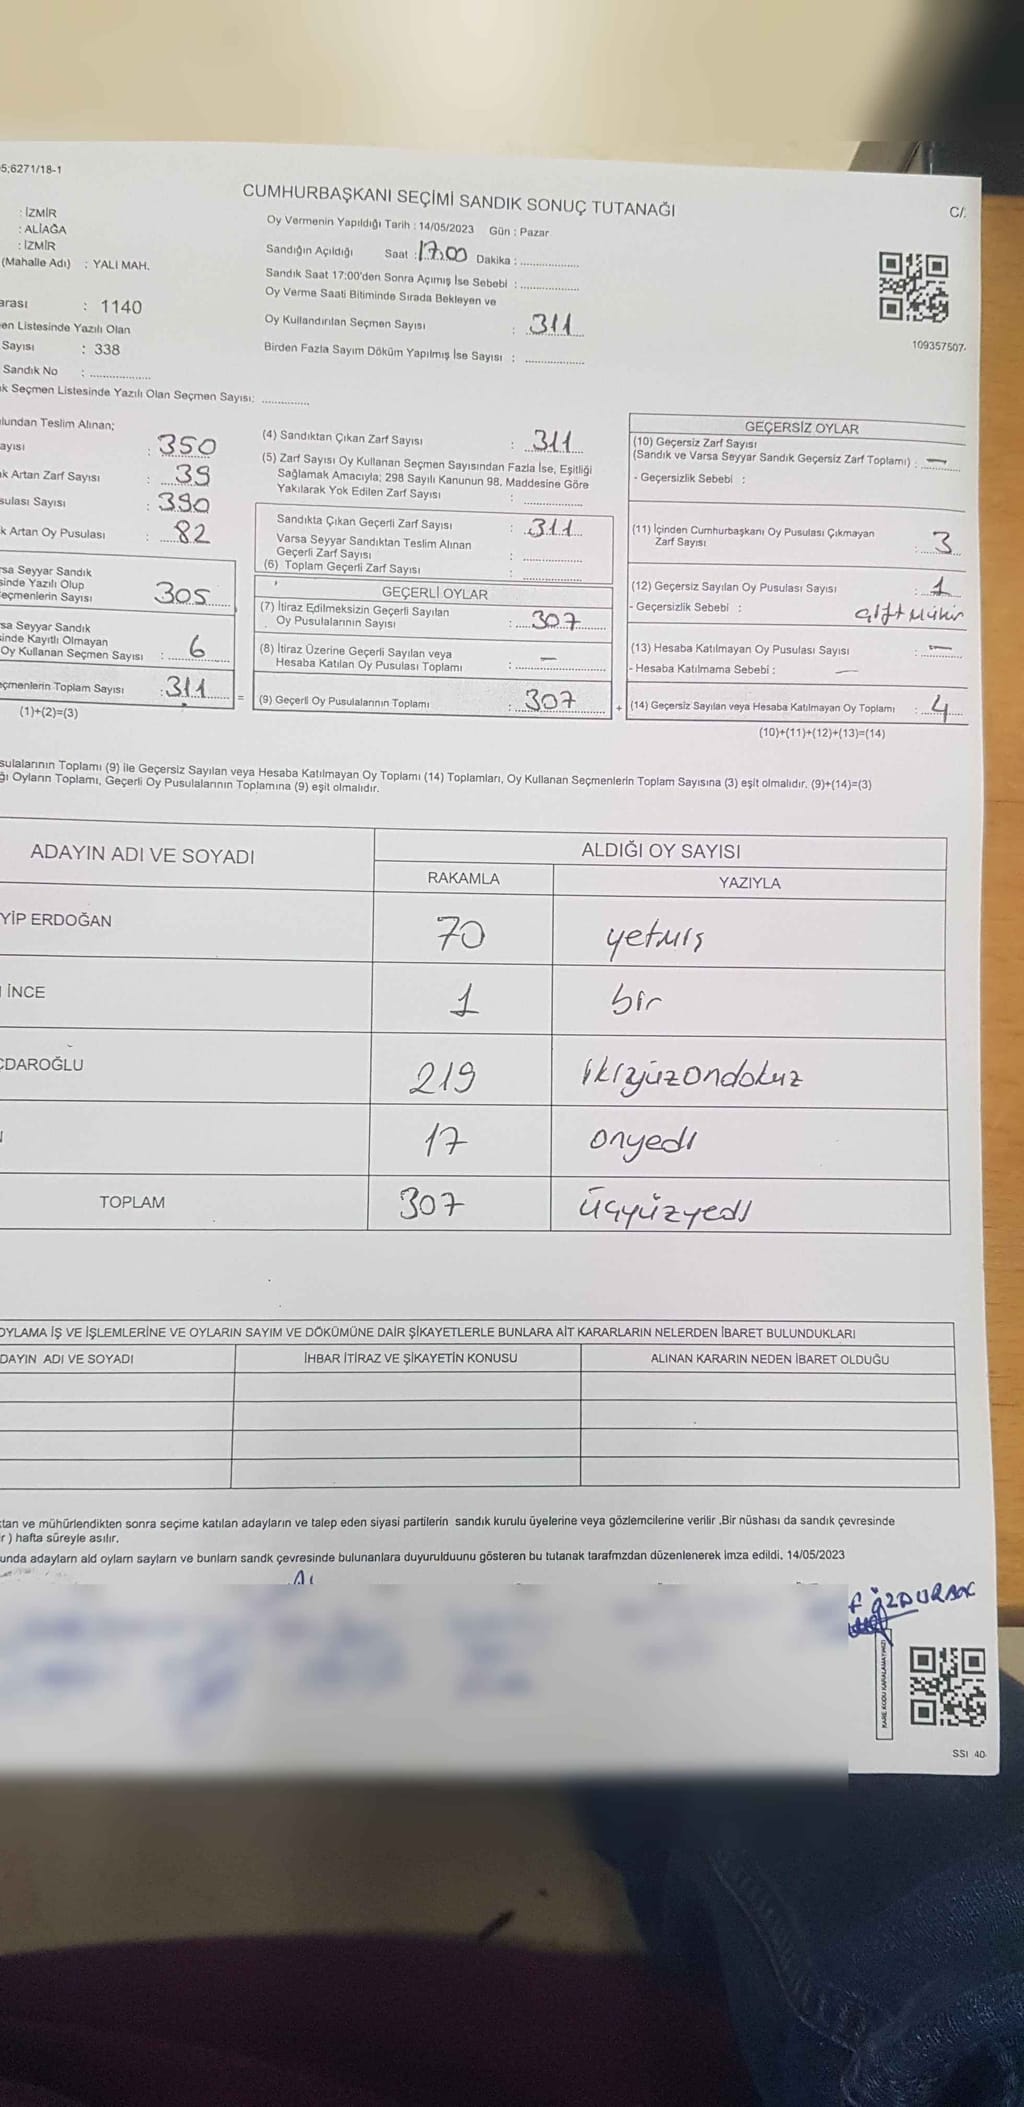 5;6271/18-1
CUMHURBAŞKANI SEÇİMİ SANDIK SONUÇ TUTANAĞI
C/.
: İZMİR
: ALİAĞA
: İZMİR
(Mahalle Adı) : YALI MAH.
arası : 1140
en Listesinde Yazılı Olan
Sayısı : 338
Sandık No : ..................
k Seçmen Listesinde Yazılı Olan Seçmen Sayısı: ..............
Oy Vermenin Yapıldığı Tarih : 14/05/2023 Gün : Pazar
Sandığın Açıldığı Saat : 17:00 Dakika : ..................
Sandık Saat 17:00'den Sonra Açımış İse Sebebi : ..................
Oy Verme Saati Bitiminde Sırada Bekleyen ve
Oy Kullandırılan Seçmen Sayısı : 311
Birden Fazla Sayım Döküm Yapılmış İse Sayısı : ..................
109357507
lundan Teslim Alınan;
ayısı : 350
k Artan Zarf Sayısı : 39
sulası Sayısı : 390
k Artan Oy Pusulası : 82
rsa Seyyar Sandık
sinde Yazılı Olup
eçmenlerin Sayısı 305
rsa Seyyar Sandık
inde Kayıtlı Olmayan
Oy Kullanan Seçmen Sayısı : 6
eçmenlerin Toplam Sayısı : 311 =
(1)+(2)=(3)
(4) Sandıktan Çıkan Zarf Sayısı : 311
(5) Zarf Sayısı Oy Kullanan Seçmen Sayısından Fazla İse, Eşitliği
Sağlamak Amacıyla; 298 Sayılı Kanunun 98. Maddesine Göre
Yakılarak Yok Edilen Zarf Sayısı : ..................
Sandıkta Çıkan Geçerli Zarf Sayısı : 311
Varsa Seyyar Sandıktan Teslim Alınan
Geçerli Zarf Sayısı : ..................
(6) Toplam Geçerli Zarf Sayısı : ..................
GEÇERLİ OYLAR
(7) İtiraz Edilmeksizin Geçerli Sayılan
Oy Pusulalarının Sayısı : 307
(8) İtiraz Üzerine Geçerli Sayılan veya
Hesaba Katılan Oy Pusulası Toplamı : —
(9) Geçerli Oy Pusulalarının Toplamı : 307 +
GEÇERSİZ OYLAR
(10) Geçersiz Zarf Sayısı
(Sandık ve Varsa Seyyar Sandık Geçersiz Zarf Toplamı) : —
- Geçersizlik Sebebi :
(11) İçinden Cumhurbaşkanı Oy Pusulası Çıkmayan
Zarf Sayısı : 3
(12) Geçersiz Sayılan Oy Pusulası Sayısı : 1
- Geçersizlik Sebebi : çift mühür
(13) Hesaba Katılmayan Oy Pusulası Sayısı : —
- Hesaba Katılmama Sebebi : —
(14) Geçersiz Sayılan veya Hesaba Katılmayan Oy Toplamı : 4
(10)+(11)+(12)+(13)=(14)
sulalarının Toplamı (9) ile Geçersiz Sayılan veya Hesaba Katılmayan Oy Toplamı (14) Toplamları, Oy Kullanan Seçmenlerin Toplam Sayısına (3) eşit olmalıdır. (9)+(14)=(3)
ğı Oyların Toplamı, Geçerli Oy Pusulalarının Toplamına (9) eşit olmalıdır.
ADAYIN ADI VE SOYADI
ALDIĞI OY SAYISI
RAKAMLA YAZIYLA
YİP ERDOĞAN 70 yetmiş
İNCE 1 bir
ÇDAROĞLU 219 ikiyüzondokuz
17 onyedi
TOPLAM 307 üçyüzyedi
OYLAMA İŞ VE İŞLEMLERİNE VE OYLARIN SAYIM VE DÖKÜMÜNE DAİR ŞİKAYETLERLE BUNLARA AİT KARARLARIN NELERDEN İBARET BULUNDUKLARI
DAYIN ADI VE SOYADI İHBAR İTİRAZ VE ŞİKAYETİN KONUSU ALINAN KARARIN NEDEN İBARET OLDUĞU
ktan ve mühürlendikten sonra seçime katılan adayların ve talep eden siyasi partilerin sandık kurulu üyelerine veya gözlemcilerine verilir .Bir nüshası da sandık çevresinde
r ) hafta süreyle asılır.
unda adaylarn ald oylarn saylarn ve bunlarn sandk çevresinde bulunanlara duyurulduunu gösteren bu tutanak tarafmzdan düzenlenerek imza edildi. 14/05/2023
KARE KODU KARALAMAYINIZ!
SSI 40